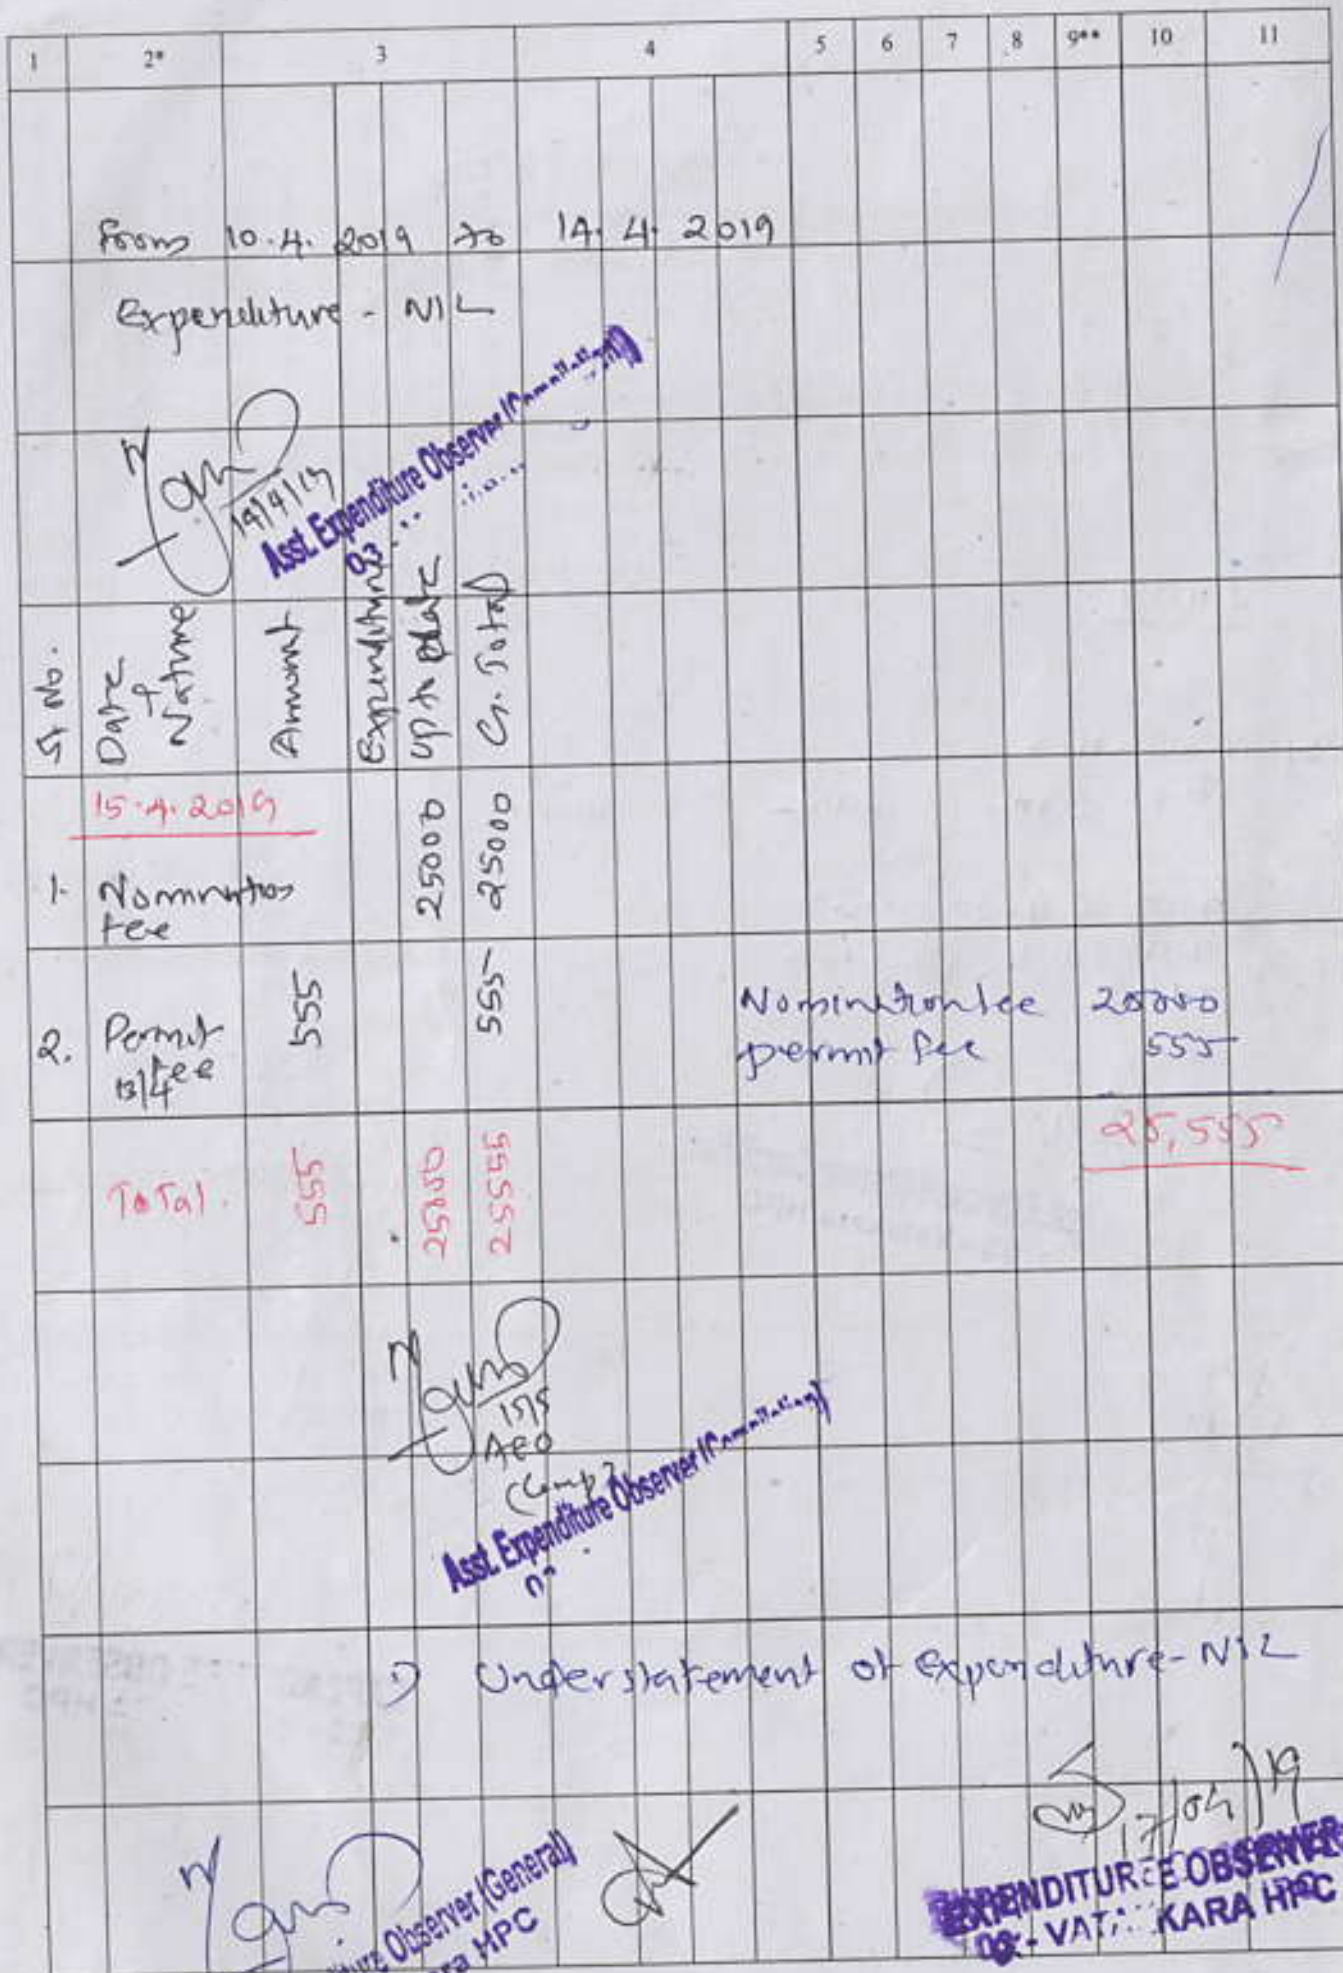 1 2* 3 4 5 6 7 8 9** 10 11
From 10.4.2019 to 14.4.2019
Expenditure - NIL
14/4/19
Asst. Expenditure Observer
03
Sl No. Date & Nature Amount Expenditure up to date G. Total
15.4.2019
1. Nomination fee 25000 25000
2. Permit fee 13/4 555 555
Nomination fee 25000
permit fee 555
25,555
Total. 555 25000 25555
15/5
AEO
(Comp)
Asst. Expenditure Observer
Understatement of expenditure - NIL
17/04/19
EXPENDITURE OBSERVER
KARA HPC
Observer (General)
HPC